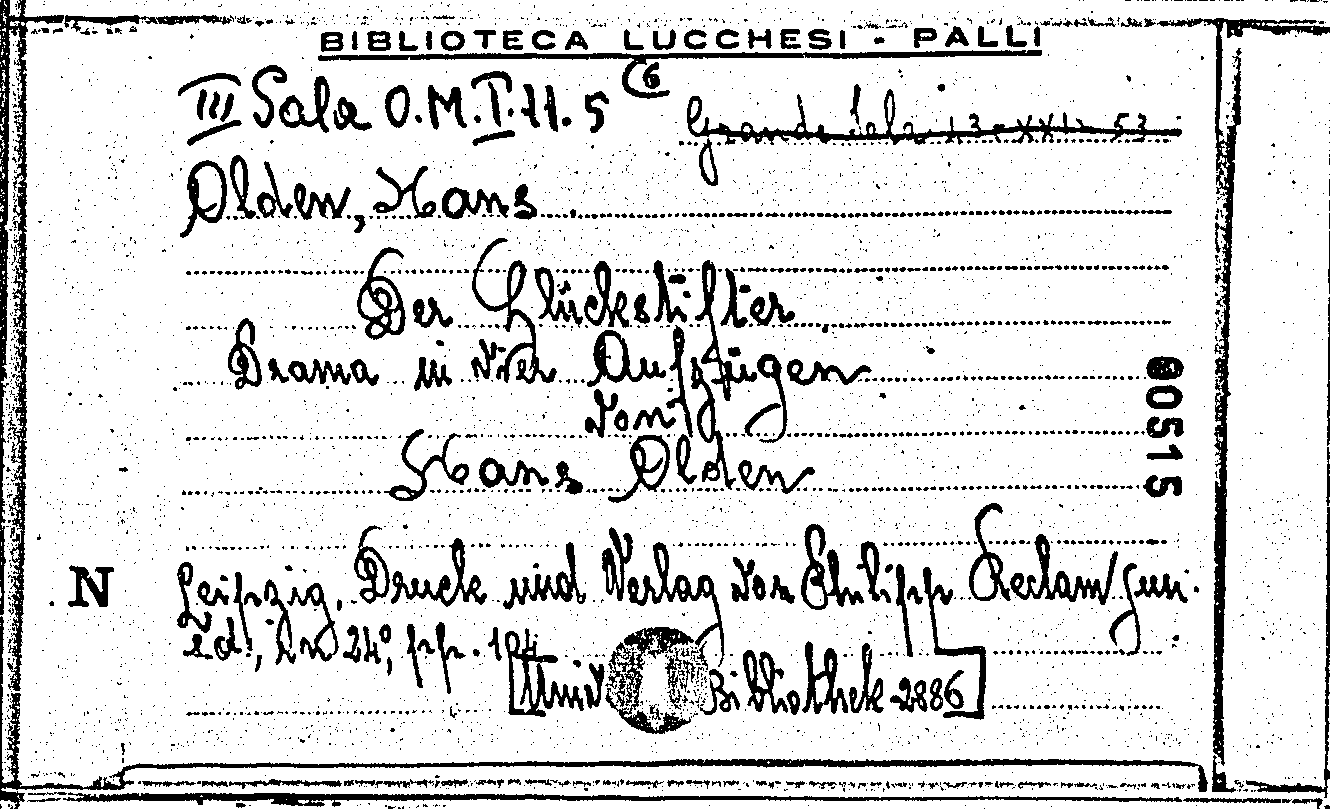 BIBLIOTECA LUCCHESI - PALLI
III Sala O.M.I.11.5 (6
Grande Sala 13-XXI-53
Olden, Hans
Der Glückstifter
Drama in vier Aufzügen
von
Hans Olden
00515
N
Leipzig, Druck und Verlag von Philipp Reclam jun.
ed., in 24°, pp. 104
[Univ Bibliothek 2886]